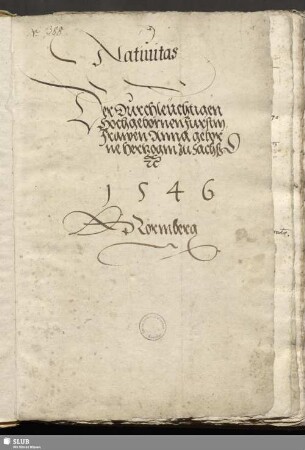 Natiuitas
Der Durchleuchtigen
Hochgebornen Furstin
Frawen Anna gebor
ne Hertzogin zu Sachß
1546
Normberg
SLUB
Wir führen Wissen.